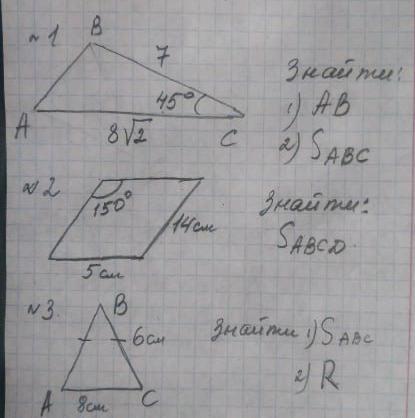 №1
B
7
45°
A
8√2
C
Знайти:
1) AB
2) S_ABC
№2
150°
14см
5см
Знайти:
S_ABCD.
№3.
B
6см
A
8см
C
Знайти 1) S_ABC
2) R